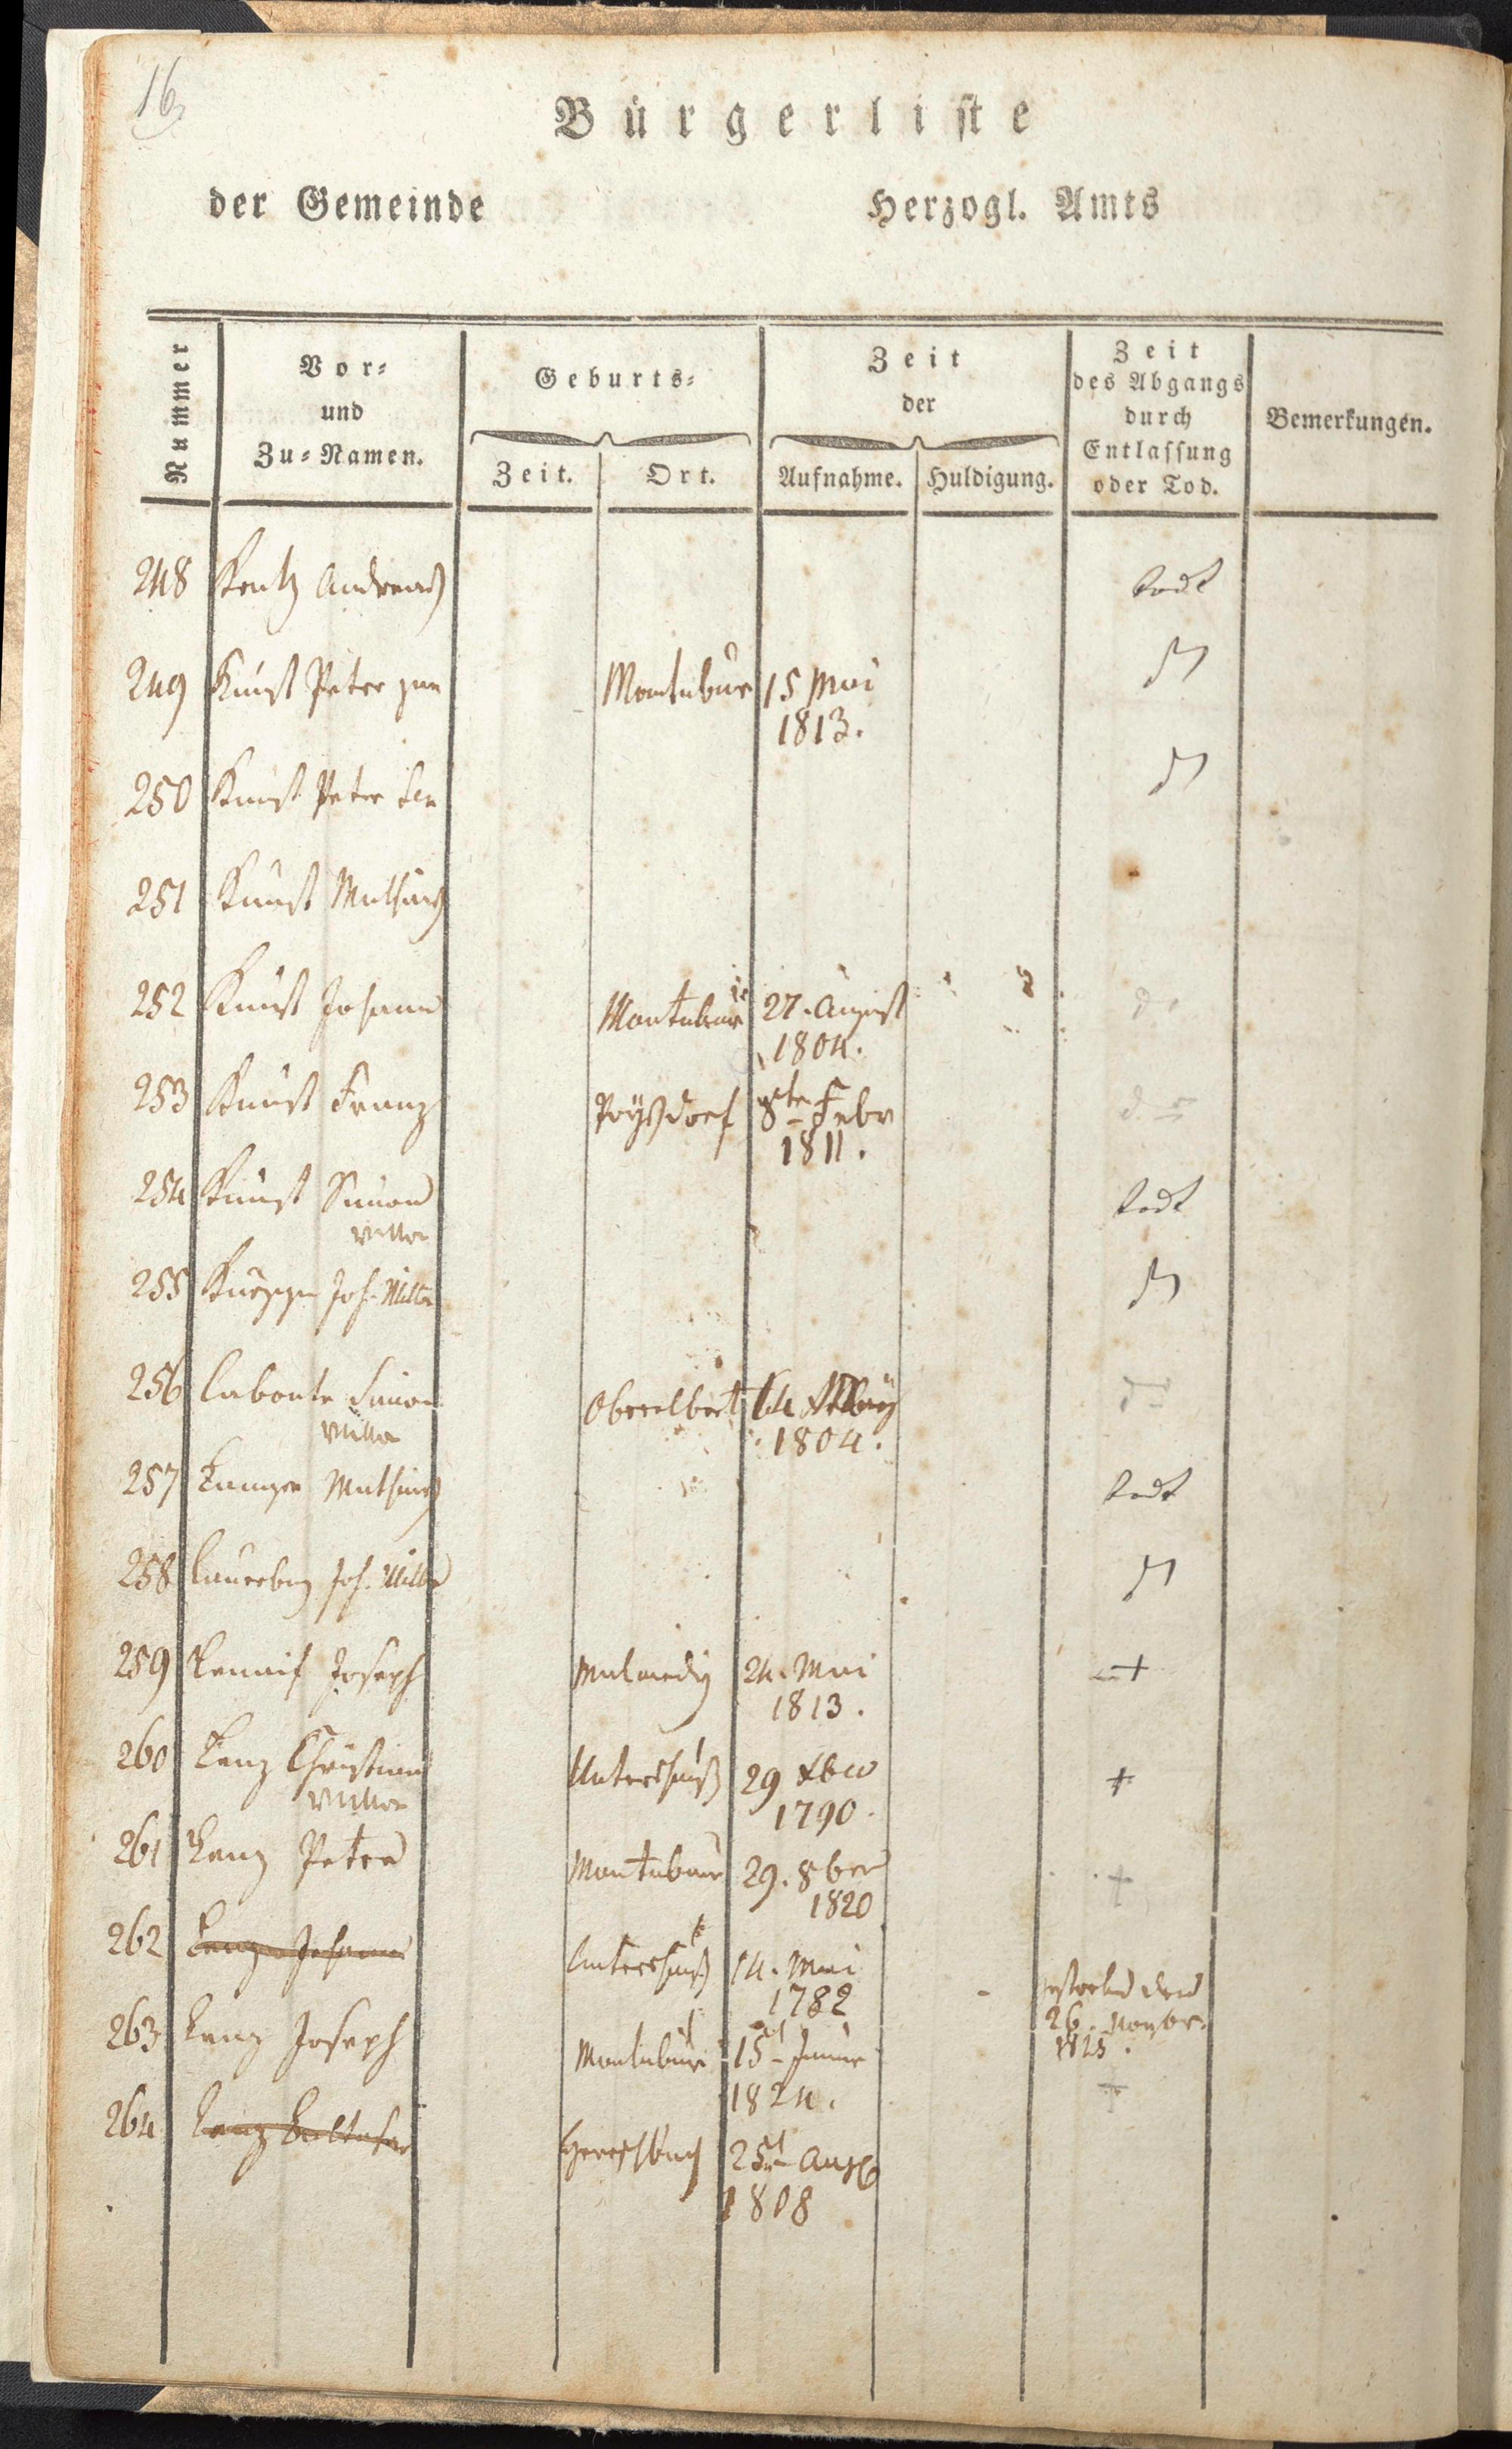 16
Bürgerliste
der Gemeinde Herzogl. Amts
Nummer
Vor- und Zu-Namen.
Geburts-
Zeit. Ort.
Zeit der
Aufnahme. Huldigung.
Zeit des Abgangs durch Entlassung oder Tod.
Bemerkungen.
248 Andreas todt
249 Kunst Peter jun Montabaur 15 Mai
1813.
250 Kunst Peter Sen
251 Kunst Mathias
252 Kunst Johann Montabaur 27. August
1804.
253 Kunst Franz 8te Febr
1811.
254 Kunst Simon todt
Wittwe
255 Joh. Wittwe
256 Labonte Simon Oberelbert
Wittwe 1804.
257 Mathias todt
258 Joh. Wittwe
259 Joseph Malmedy 24. Mai †
1813.
260 Lenz Christian Untershausß 29 Xber †
Wittwe 1790.
261 Lenz Peter Montabaur 29. 8ber †
1820
262 Lenz Johann Untershausß 14. Mai
1782 gestorben den
26. Novbr.
1825.
263 Lenz Joseph Montabaur 15t Januar †
1824.
264 Lenz Baltasar 25t Aug
1808